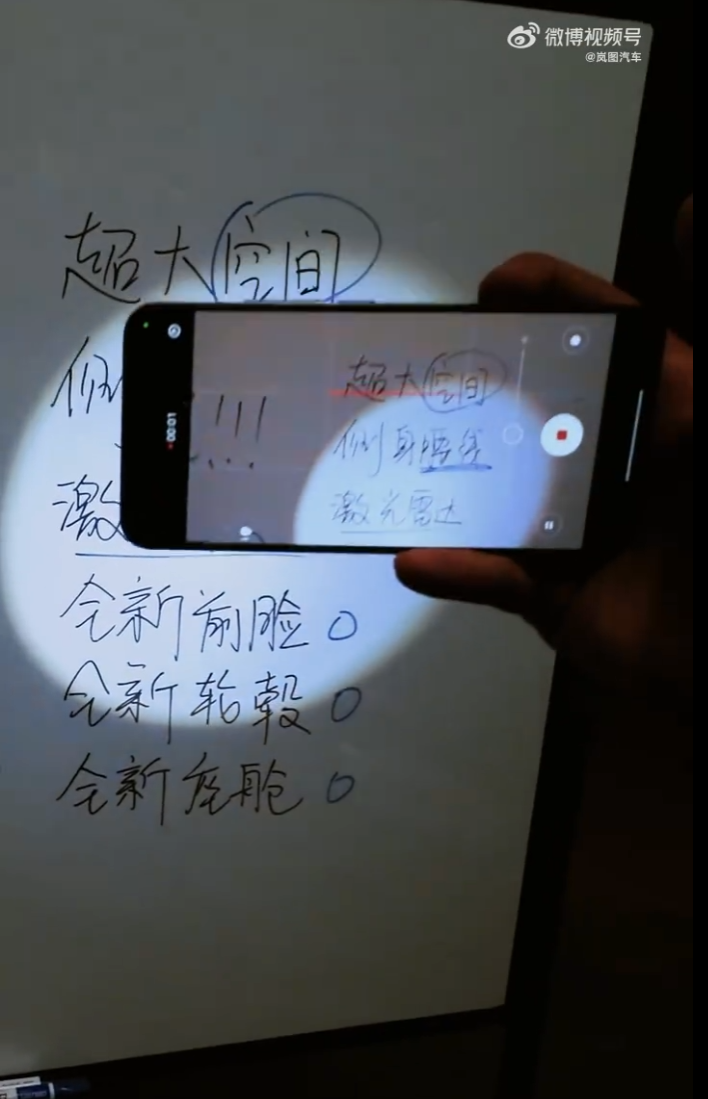 微博视频号
@岚图汽车
超大空间
侧
激
全新前脸 0
全新轮毂 0
全新座舱 0
00:01
!!!
...
超大空间
侧身腰线
激光雷达